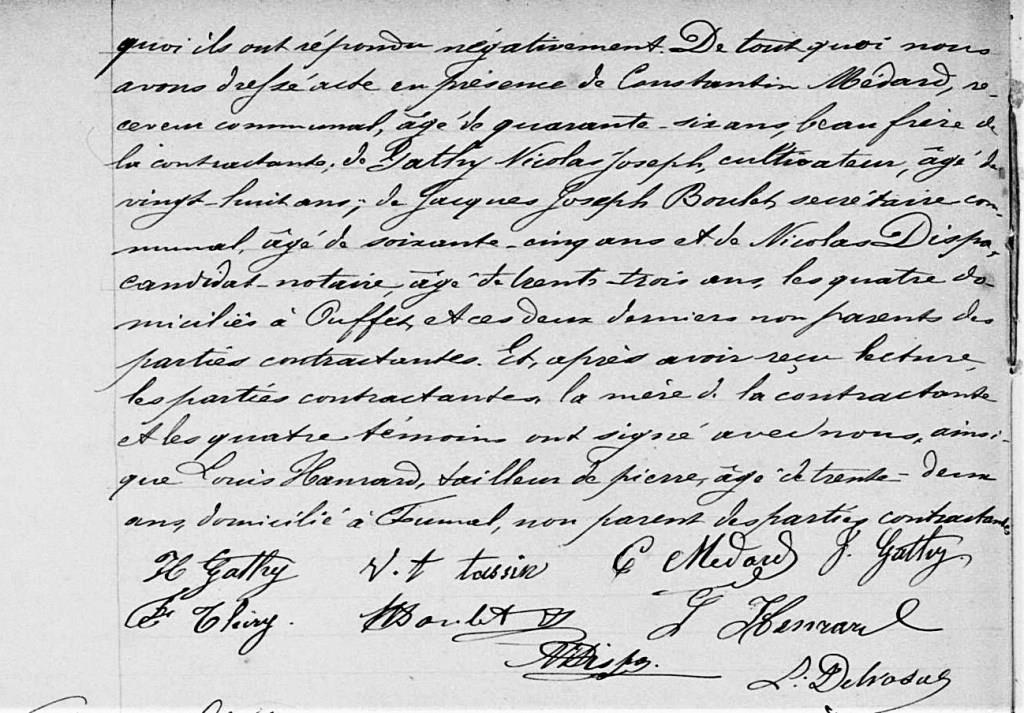 quoi ils ont répondu négativement. De tout quoi nous
avons dressé acte en présence de Constantin Médard, re-
ceveur communal, âgé de quarante-six ans, beau frère de
la contractante; de Gathy Nicolas Joseph, cultivateur, âgé de
vingt-huit ans; de Jacques Joseph Boulet, secrétaire com-
munal, âgé de soixante-cinq ans et de Nicolas Dispa,
candidat-notaire, âgé de trente-trois ans, les quatre do-
miciliés à Ouffet, et ces deux derniers non parents des
parties contractantes. Et, après avoir reçu lecture,
les parties contractantes, la mère de la contractante
et les quatre témoins ont signé avec nous, ainsi
que Louis Hanrard, tailleur de pierre, âgé de trente-deux
ans, domicilié à Fumal, non parent des parties contractantes
H Gathy V. t tassin C Medard J. Gathy
Thiry. Boulet L Henrard
NDispa.
L. Delvosal